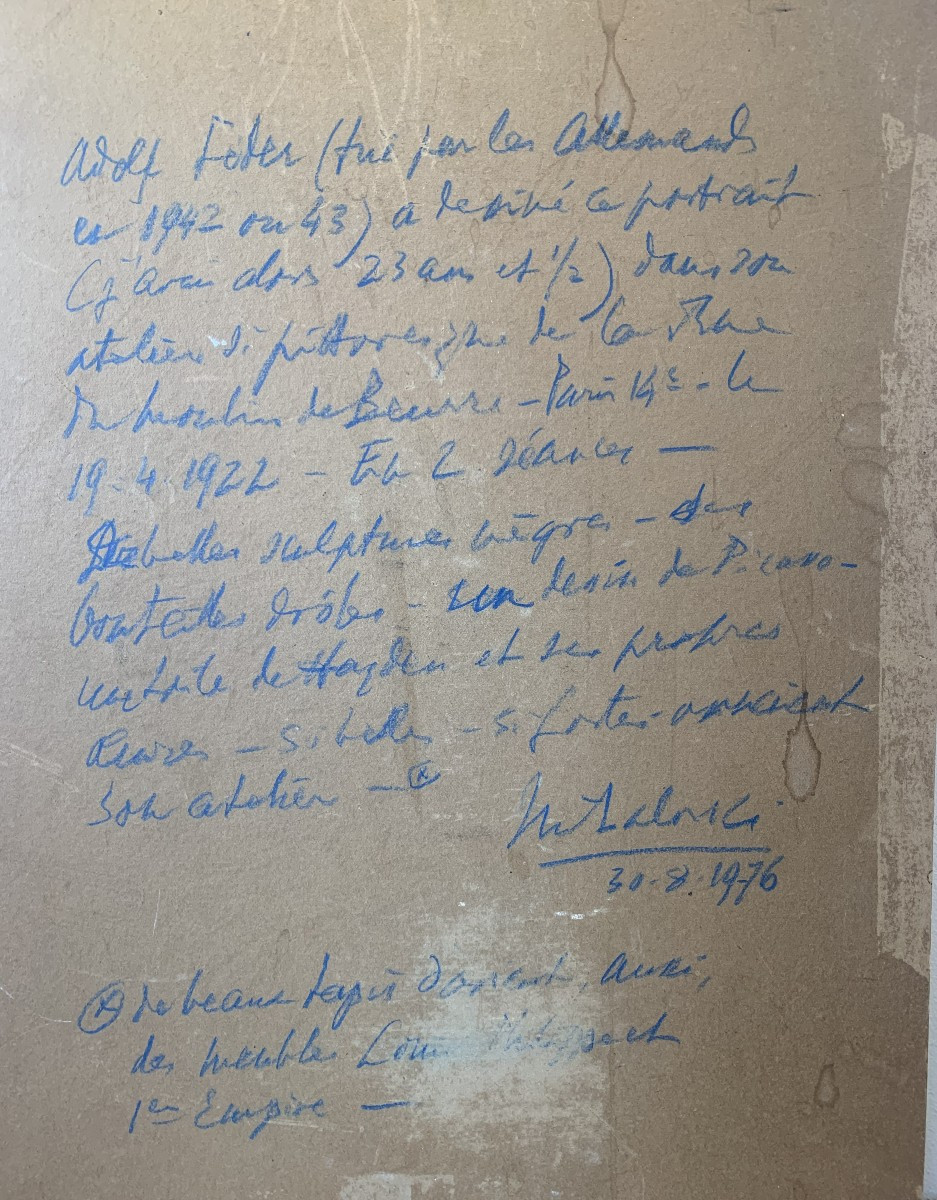 Adolf Feder (tué par les Allemands
en 1942 ou 43) a dessiné ce portrait
(j'avais alors 23 ans et 1/2) dans son
atelier si pittoresque de la Rue
du Moulin de Beurre - Paris 14e - le
19.4.1922 - En 2 séances —
De belles sculptures nègres - des
bouteilles drôles - un dessin de Picasso -
un de Hayden et ses propres
Œuvres - si belles - si fortes
son atelier - (x)
30.8.1976
(x) de beaux tapis d'orient, aussi,
des meubles Louis Philippe et
1er Empire —